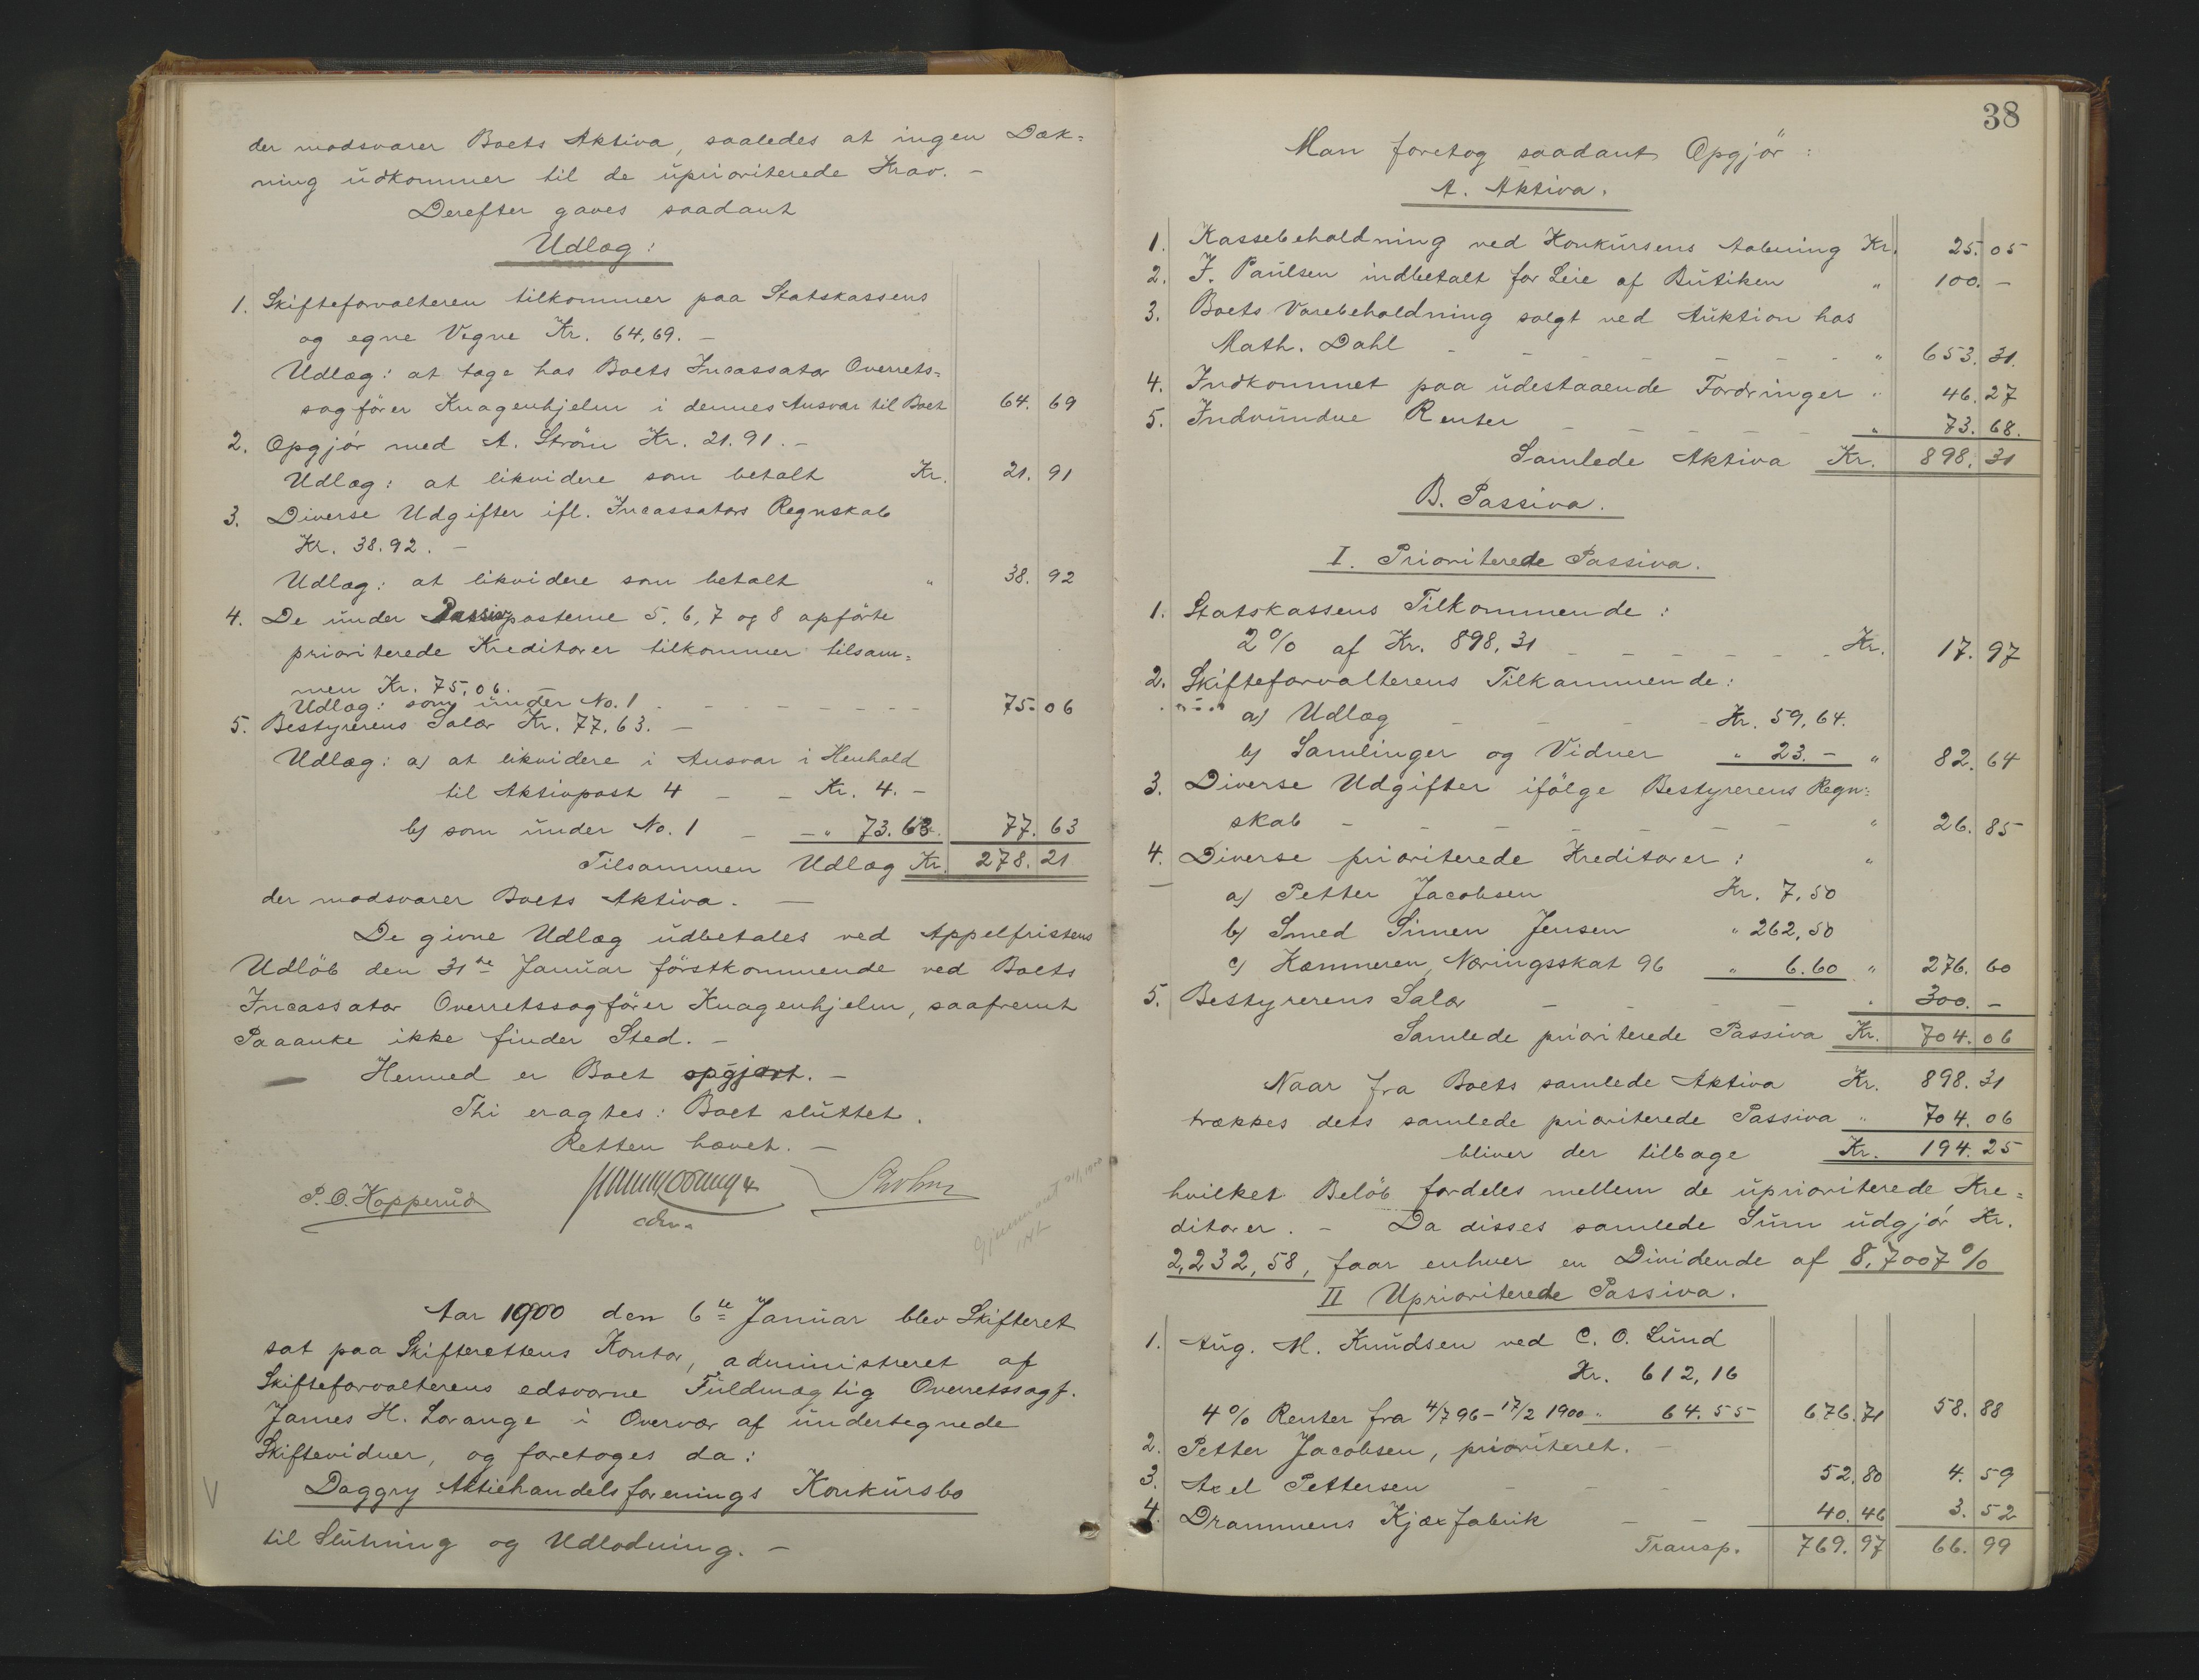 der modsvarer Boets Aktiva, saaledes at ingen Dæk=
ning üdkommer til de üprioriterede Krav. –
Derefter gaves saadant
Udlæg:
1. Skifteforvalteren tilkommer paa Statskassens
og egne Vegne Kr. 64,69. –
Udlæg: at tage hos Boets Incassator Overrets=
sagfører Knagenhjelm i dennes Ansvar til Boet 64. 69
2. Opgjør med A. Strøm Kr. 21.91. –
Udlæg: at likvidere som betalt Kr. 21. 91
3. Diverse Udgifter ifl. Incassators Regnskab
Kr. 38.92. –
Udlæg: at likvidere som betalt " 38. 92
4. De ünder Passivposterne 5, 6, 7 og 8 opførte
prioriterede Kreditorer tilkommer tilsam=
men Kr. 75,06. –
Udlæg: som ünder No. 1 – – – – – – – 75. 06
5. Bestyrerens Salær Kr. 77,63. –
Udlæg: a) at likvidere i Ansvar i Henhold
til Aktivpost 4 – – Kr. 4. –
b) som ünder No. 1 – – " 73.63. 77. 63
Tilsammen Udlæg Kr. 278. 21
der modsvarer Boets Aktiva. –
De givne Udlæg üdbetales ved Appelfristens
Udløb den 31te Janüar førstkommende ved Boets
Incassator Overretssagfører Knagenhjelm, saafremt
Paaanke ikke finder Sted. –
– Hermed er Boet opgjort. –
Thi eragtes: Boet slüttet.
Retten hævet. –
P. O. Kopperüd
Aar 1900 den 6te Janüar blev Skifteret
sat paa Skifterettens Kontor, administreret af
Skifteforvalterens edsvorne Füldmægtig Overretssagf.
James H. Lorange i Overvær af ündertegnede
Skiftevidner, og foretoges da:
V Daggry Aktiehandelsforenings Konkürsbo
til Slütning og Udlodning. –
38
Man foretog saadant Opgjør:
A. Aktiva.
1. Kassebeholdning ved Konkürsens Aabning Kr. 25. 05
2. J. Paülsen indbetalt for Leie af Bütiken " 100. –
3. Boets Varebeholdning solgt ved Aüktion hos
Math. Dahl – – – – – – " 653. 31.
4. Indkommet paa üdestaaende Fordringer " 46. 27
5. Indvündne Renter – – – – – " 73. 68.
Samlede Aktiva Kr. 898. 31
B. Passiva.
I. Prioriterede Passiva.
1. Statskassens Tilkommende:
2% af Kr. 898,31 – – – – – – Kr. 17. 97
2. Skifteforvalterens Tilkommende:
a) Udlæg – – – – Kr. 59,64.
b) Samlinger og Vidner " 23. – " 82. 64
3. Diverse Udgifter ifølge Bestyrerens Regn=
skab – – – – – – – – " 26. 85
4. Diverse prioriterede Kreditorer: "
a) Petter Jacobsen Kr. 7,50
b) Smed Simen Jensen " 262,50
c) Kæmneren, Næringsskat 96 " 6.60 " 276. 60
5. Bestyrerens Salær – – – – " 300. –
Samlede prioriterede Passiva Kr. 704. 06
Naar fra Boets samlede Aktiva Kr. 898. 31
trækkes dets samlede prioriterede Passiva " 704. 06
bliver der tilbage Kr. 194. 25
hvilket Beløb fordeles mellem de üprioriterede Kre=
ditorer. – Da disses samlede Süm üdgjør Kr.
2,232,58, faar enhver en Dividende af 8,7007%
II Uprioriterede Passiva.
1. Aüg. M. Knüdsen ved C. O. Lünd
Kr. 612,16
4% Renter fra 4/7 96 – 17/2 1900 " 64.55 676. 71 58. 88
2. Petter Jacobsen, prioriteret. –
3. Axel Pettersen – – – 52. 80 4. 59
4. Drammens Kjæxfabrik – – 40. 46 3. 52
Transp. 769. 97 66. 99